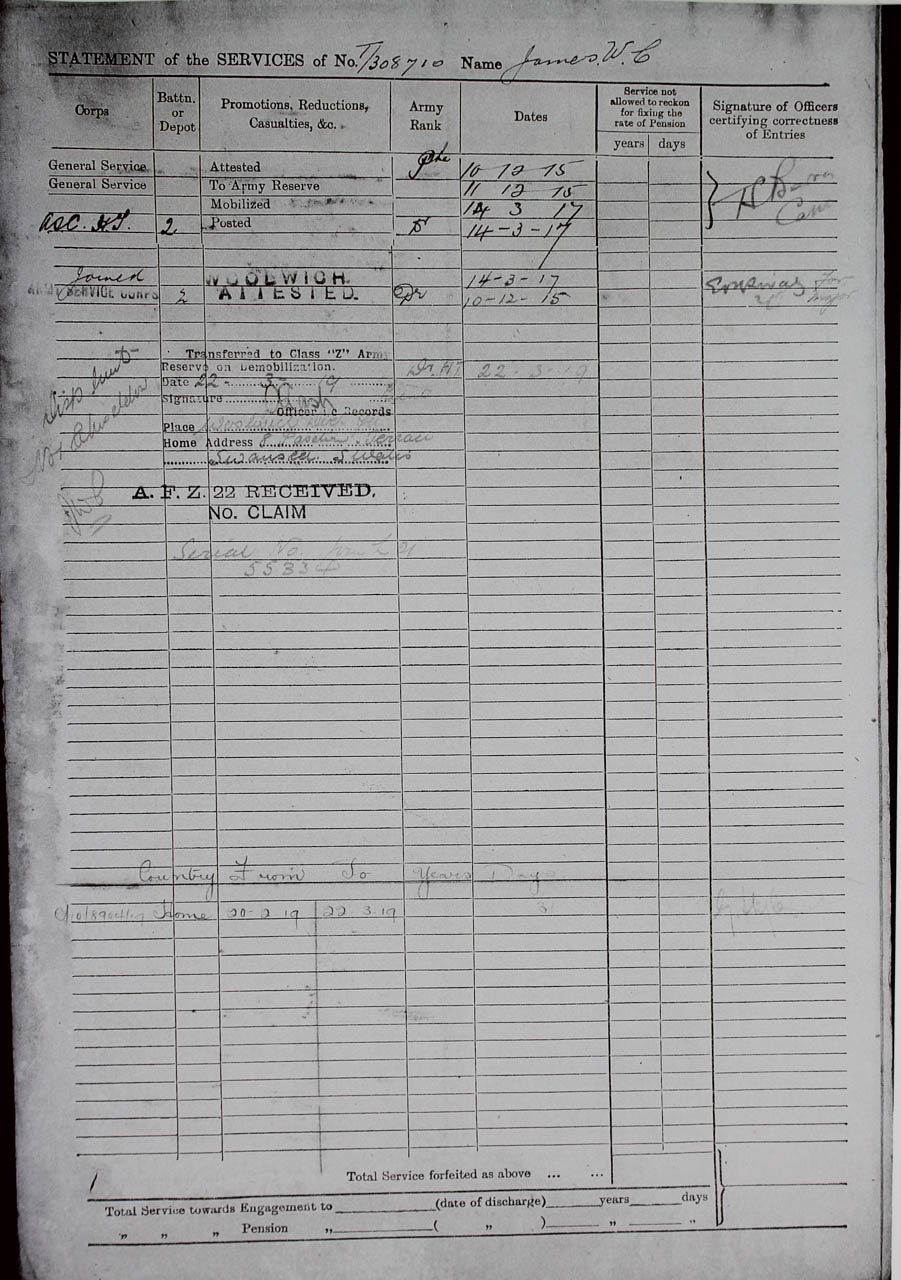 STATEMENT of the SERVICES of No. T/308710 Name James. W. C
Corps Battn. or Depot Promotions, Reductions, Casualties, &c. Army Rank Dates Service not allowed to reckon for fixing the rate of Pension years days Signature of Officers certifying correctness of Entries
General Service Attested Pte 10 12 15
General Service To Army Reserve 11 12 15
Mobilized 14 3 17
ASC. HT. 2 Posted Dr 14-3-17
Joined WOOLWICH. 14-3-17
SERVICE CORPS 2 ATTESTED. Dr 10-12-15
Transferred to Class "Z" Army
Reserve on Demobilization. Dr. HT 22-3-19
Date 22 3 19
Signature
Officer i/c Records
Place Woolwich
Home Address 8 Terrace
Swansea
A. F. Z. 22 RECEIVED.
No. CLAIM
Serial No.
55334
Country From To Years Days
Home 20-2 19 22.3.19 31
1
Total Service forfeited as above ... ...
Total Service towards Engagement to (date of discharge) years days
" " " Pension " ( " ) " "